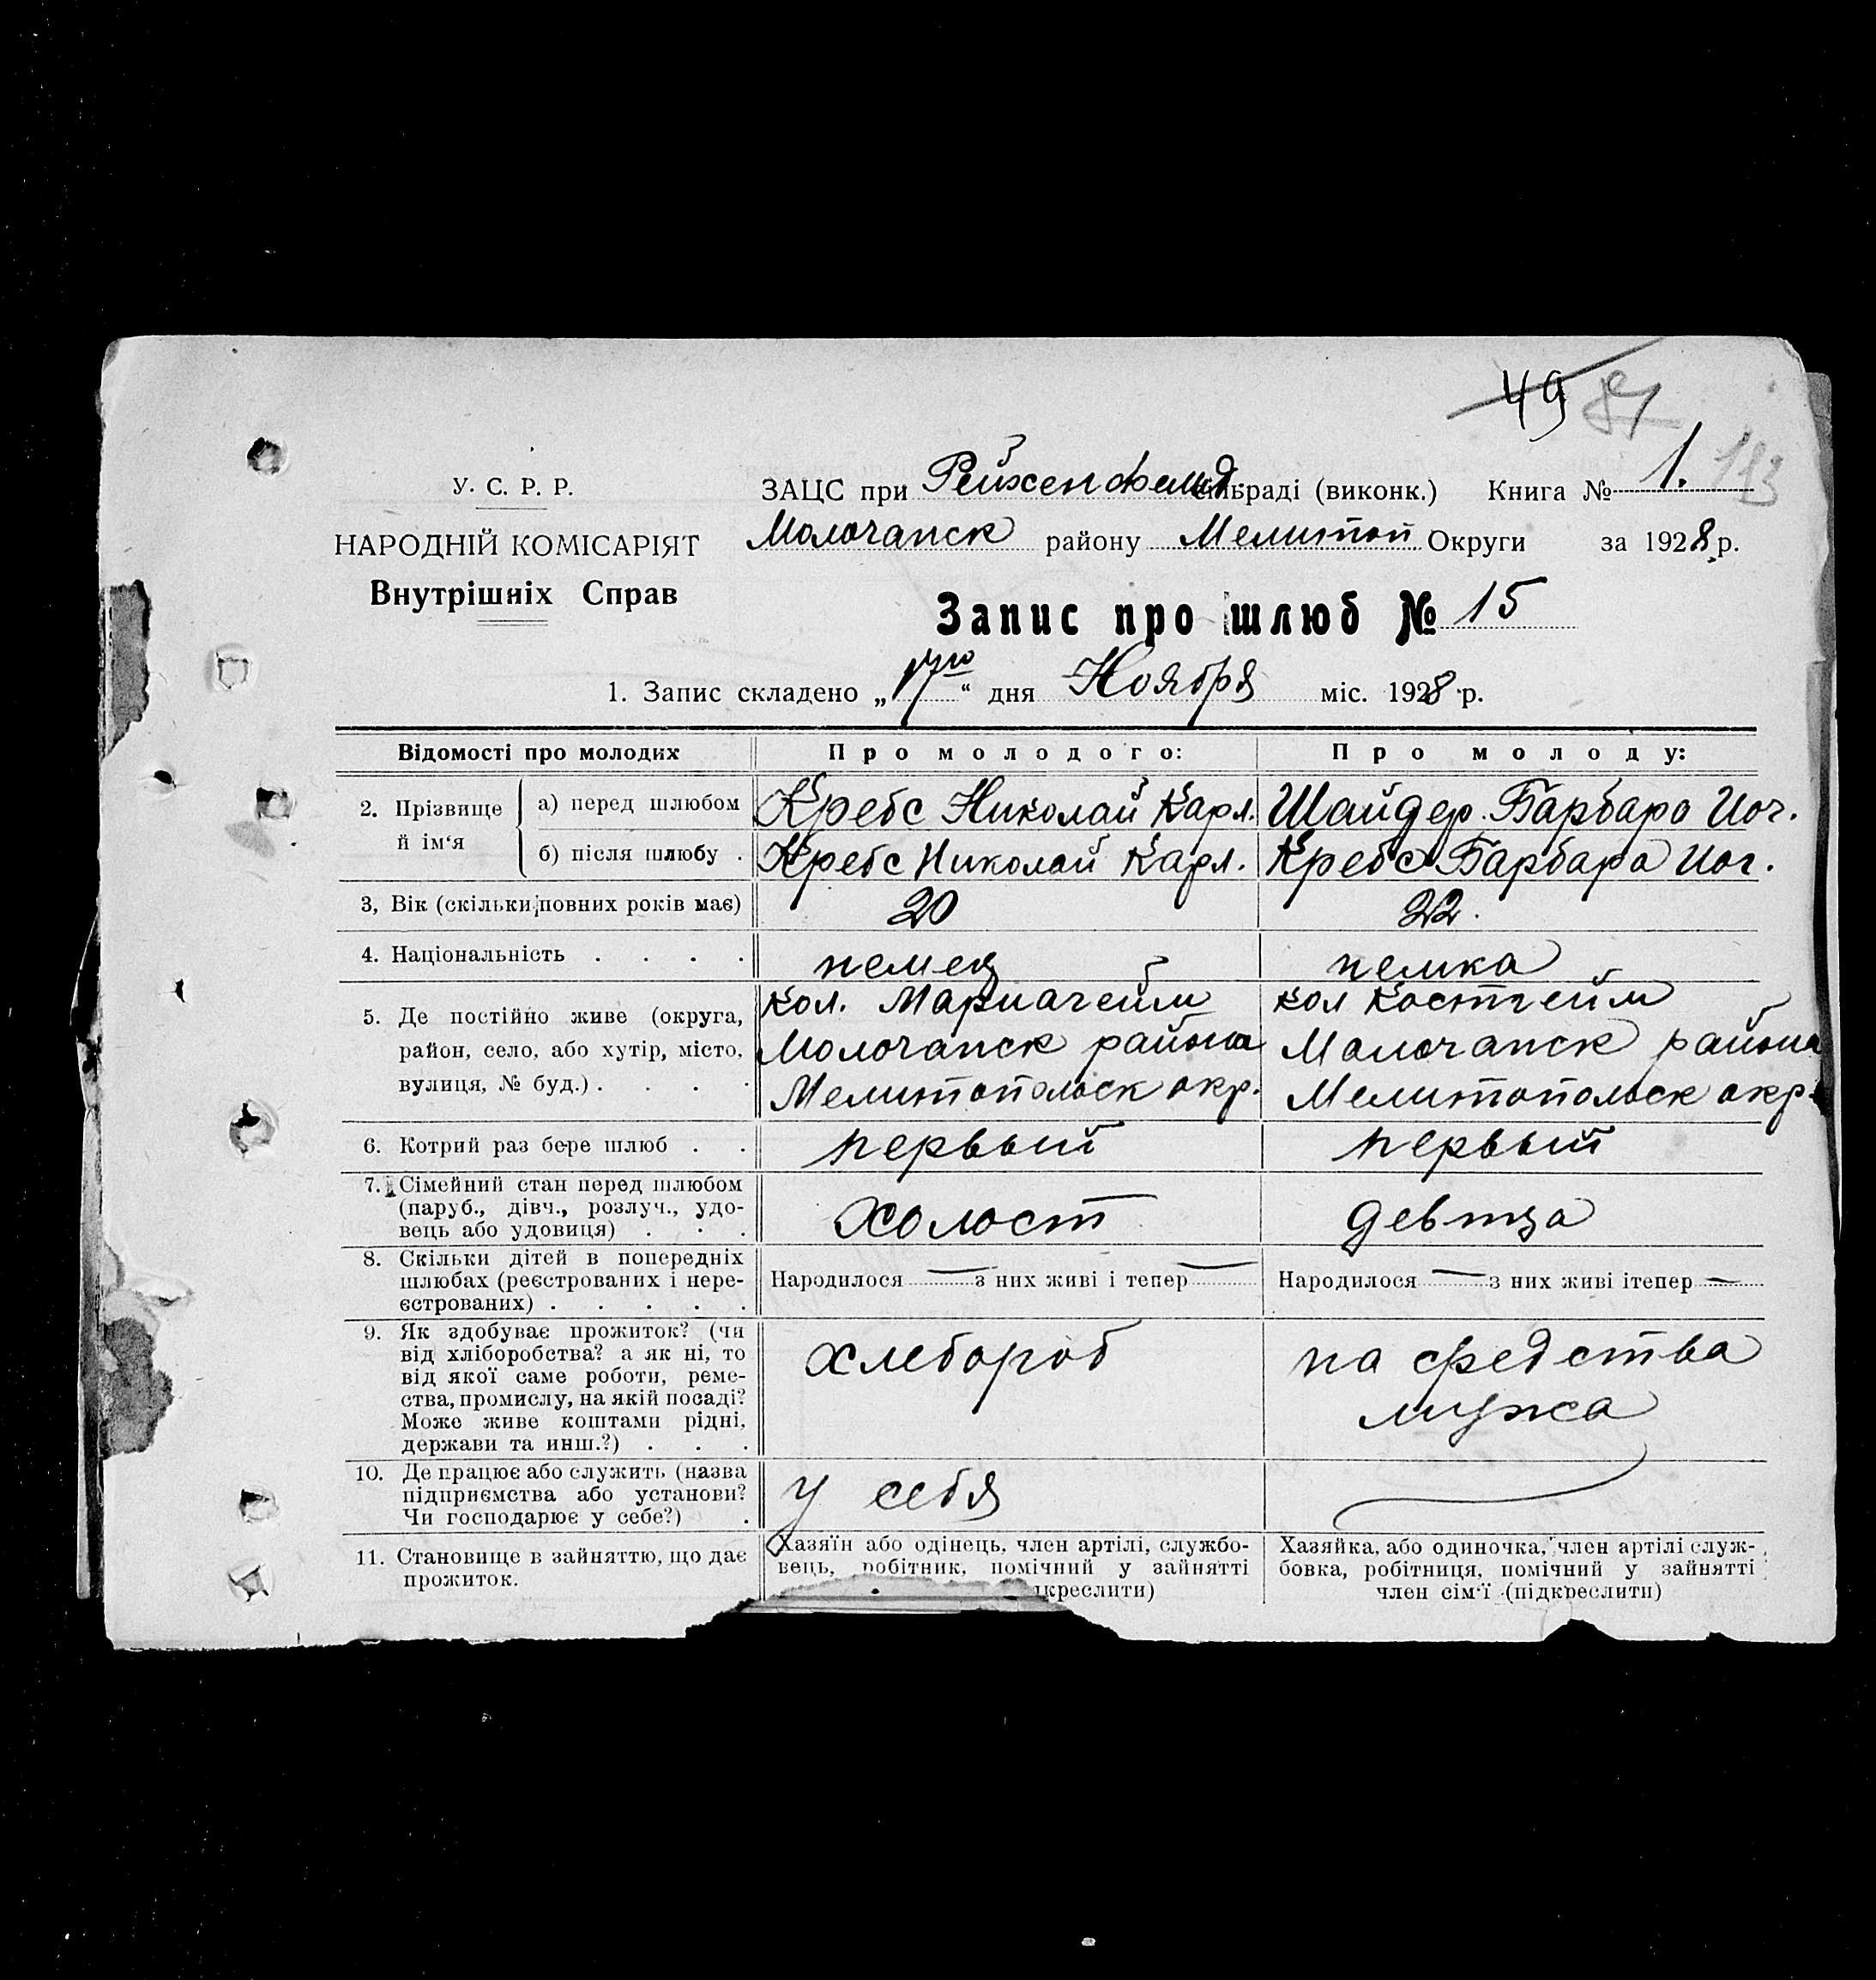 49 87
У. С. Р. Р.
ЗАЦС при Рейхенфельд сільраді (виконк.) Книга № 1. 193
НАРОДНІЙ КОМІСАРІЯТ
Молочанск району Мелитоп Округи за 1928 р.
Внутрішніх Справ
Запис про шлюб № 15
1. Запис складено „17го“ дня Ноября міс. 1928 р.
Відомості про молодих
Про молодого:
Про молоду:
2. Прізвище й ім‘я
а) перед шлюбом
Кребс Николай Карл.
Шайдер Барбара Иог.
б) після шлюбу .
Кребс Николай Карл.
Кребс Барбара Иог.
3, Вік (скільки повних років має)
20
22.
4. Національність . . . .
немец
немка
5. Де постійно живе (округа,
район, село, або хутір, місто,
вулиця, № буд.) . . . .
Кол. Мариагейм
Молочанск района
Мелитопольск окр.
Кол Костгейм
Молочанск района
Мелитопольск окр.
6. Котрий раз бере шлюб . .
первый
первый
7. Сімейний стан перед шлюбом
(паруб., дівч., розлуч., удо-
вець або удовиця) . . .
холост
девица
8. Скільки дітей в попередніх
шлюбах (реєстрованих і нере-
єстрованих) . . . . .
Народилося — з них живі і тепер —
Народилося — з них живі ітепер —
9. Як здобуває прожиток? (чи
від хліборобства? а як ні, то
від якої саме роботи, реме-
ства, промислу, на якій посаді?
Може живе коштами рідні,
держави та инш.?) . . .
хлебороб
на средства
мужа
10. Де працює або служить (назва
підприємства або установи?
Чи господарює у себе?) .
у себя
11. Становище в зайняттю, що дає
прожиток.
Хазяїн або одінець, член артілі, службо-
вець, робітник, помічний у зайнятті
дкреслити)
Хазяйка, або одиночка, член артілі служ-
бовка, робітниця, помічний у зайнятті
член сім‘ї (підкреслити)